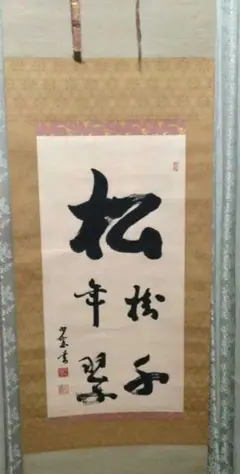 松
樹千
年翠